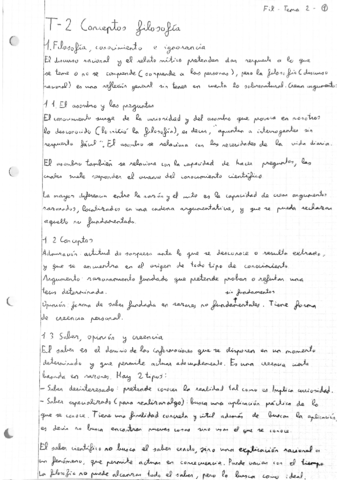 Fil - Tema 2 - ①
T-2 Conceptos filosofía
1. Filosofía, conocimiento o ignorancia
El discurso racional y el relato mítico pretenden dar respuesta a lo que
se teme o no se comprende (corresponde a las personas), pero la filosofía (discurso
racional) es una reflexión general sin tener en cuenta lo sobrenatural. Crean argumentos
1.1. El asombro y las preguntas
El conocimiento surge de la curiosidad y del asombro que provoca en nosotros
lo desconocido (lo inició la filosofía), es decir, "apuntar a interrogantes sin
respuesta fácil". El asombro se relaciona con las necesidades de la vida diaria.
El asombro también se relaciona con la capacidad de hacer preguntas, las
cuales suele responder el avance del conocimiento científico
La mayor diferencia entre la razón y el mito es la capacidad de crear argumentos
razonados, localizados en una cadena argumentativa, y que se pueda rechazar
aquello no fundamentado.
1.2 Conceptos
Admiración actitud de sorpresa ante lo que se desconoce o resulta extraño,
y que se encuentra en el origen de todo tipo de conocimiento
Argumento razonamiento fundado que pretende probar o refutar una
tesis determinada.
sin fundamentos
Opinión forma de saber fundada en razones no fundamentales. Tiene forma
de creencia personal.
1.3 Saber, opinión y creencia
El saber es el dominio de las informaciones que se disponen en un momento
determinado y que permite actuar adecuadamente. Es una creencia cierta
basada en razones. Hay 2 tipos:
- Saber desinteresado: pretende conocer la realidad tal como es. Implica curiosidad.
- Saber especializado (para realizar algo): busca una aplicación práctica de lo
que se conoce. Tiene una finalidad concreta y útil además de buscar la aplicación,
es decir no busca encontrar nuevas cosas sino usar el que se conoce.
El saber científico no busca el saber exacto, sino una explicación racional a
un fenómeno, que permite actuar en consecuencia. Puede variar con el tiempo
La filosofía no puede alcanzar todo el saber, pero lo busca como ideal,